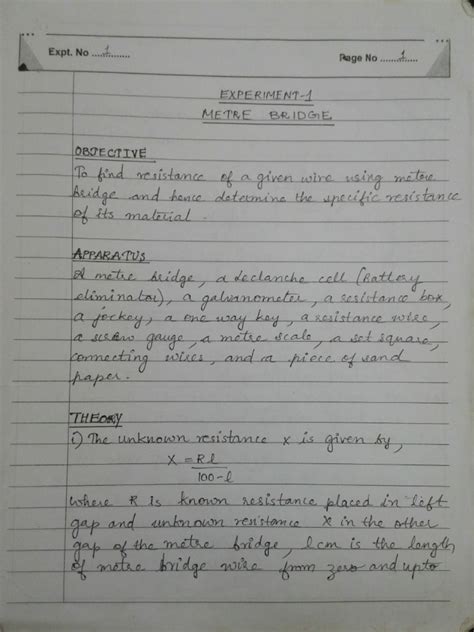 Expt. No ....1........
Page No ....1.....
EXPERIMENT-1
METRE BRIDGE
OBJECTIVE
To find resistance of a given wire using metre
bridge and hence determine the specific resistance
of its material.
APPARATUS
A metre bridge, a Leclanche cell (Battery
eliminator), a galvanometer, a resistance box,
a jockey, a one way key, a resistance wire,
a screw gauge, a metre scale, a set square,
connecting wires, and a piece of sand
paper.
THEORY
i) The unknown resistance X is given by,
X = Rl
100-l
where R is known resistance placed in left
gap and unknown resistance X in the other
gap of the metre bridge, l cm is the length
of metre bridge wire from zero and upto